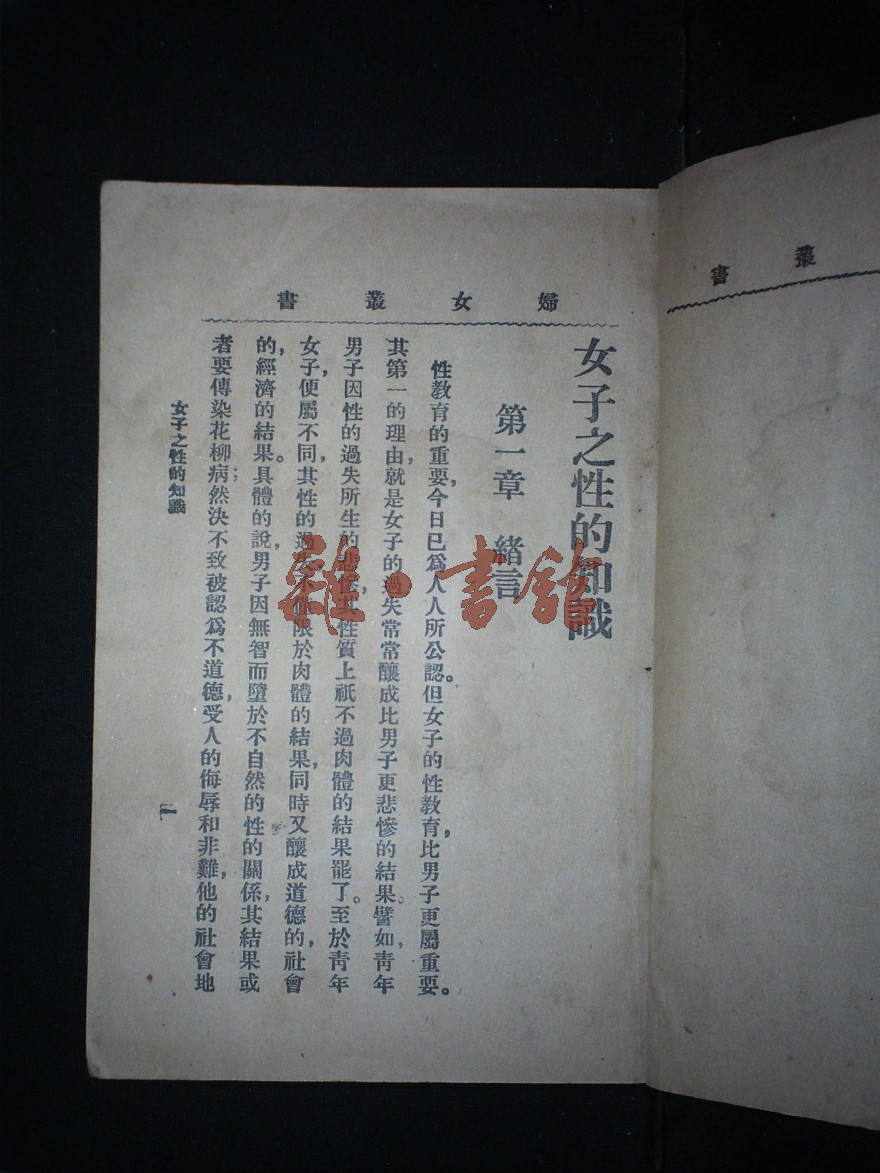 婦女叢書
女子之性的知識
第一章　緒言
性教育的重要，今日已爲人人所公認。但女子的性教育，比男子更屬重要。
其第一的理由，就是女子的過失常常釀成比男子更悲慘的結果。譬如，靑年
男子因性的過失所生的悲慘，其性質上祇不過肉體的結果罷了。至於靑年
女子，便屬不同，其性的過失，不僅限於肉體的結果，同時又釀成道德的，社會
的，經濟的結果。具體的說，男子因無智而墮於不自然的性的關係，其結果或
者要傳染花柳病；然決不致被認爲不道德，受人的侮辱和非難，他的社會地
女子之性的知識
一
叢書
雜·書館